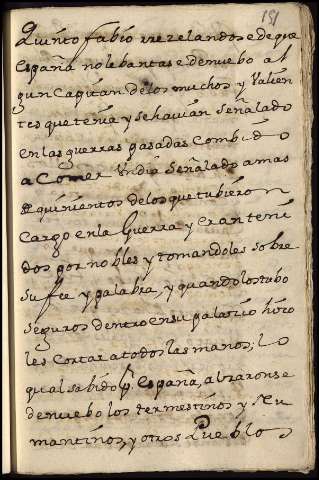 151
Quinto fabio rrezelandose de que
España no lebantase de nuebo al
gun Capitan de los muchos y Valien
tes que tenia y se havian señalado
en las guerras pasadas Combidò
a Comer Undia señalado a mas
de quinientos de los que tubieron
Cargo en la Guerra y eran teni
dos por nobles y tomandoles sobre
su fee y palabra, y quando los tubo
seguros dentro en su palasio hiço
les Cortar a todos las manos; lo
qual sabido España, alzaronse
de nuebo los termestinos y Nu
mantinos, y otros Pueblos